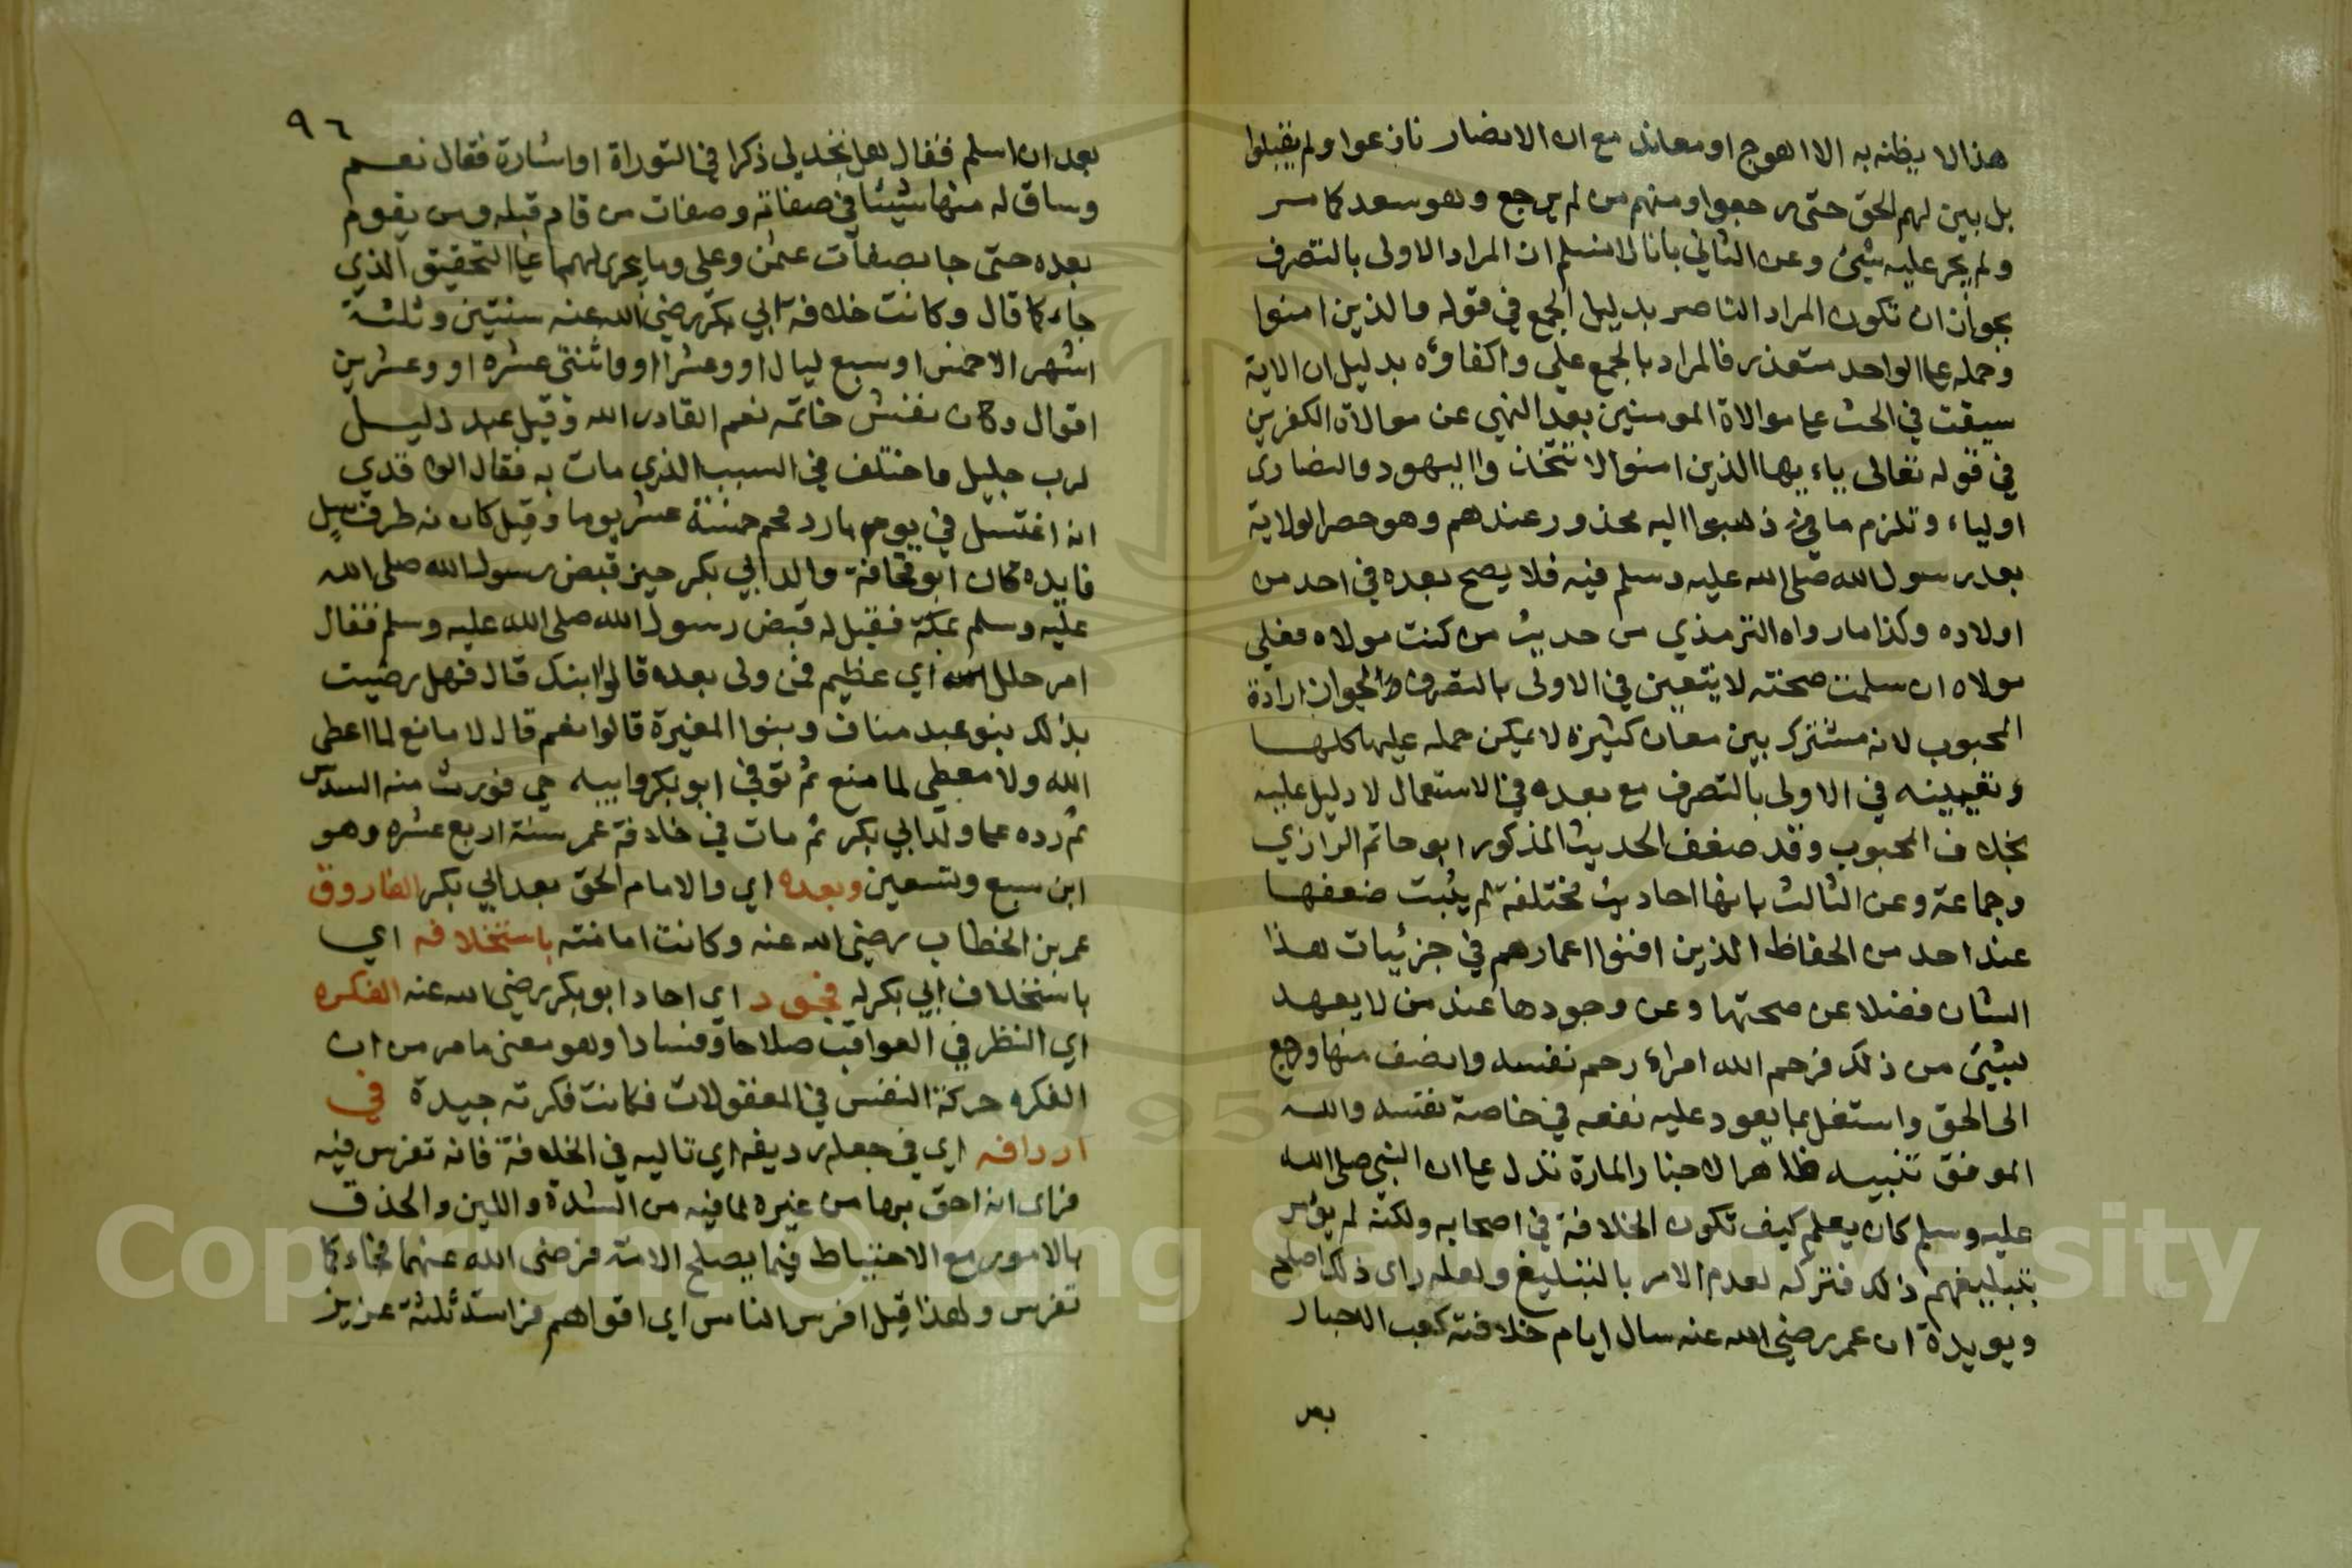 هذا لا يظنه به الا اهوج او معاند مع ان الانصار نازعوا ولم يقبلوا
بل بين لهم الحق حتى رجعوا ومنهم من لم يرجع وهو سعد كما مر
ولم يجر عليه شيئ وعن الثاني بانا لا نسلم ان المراد الاولى بالتصرف
بجواز ان تكون المراد الناصر بدليل الجمع في قوله والذين امنوا
وحمله على الواحد متعذر فالمراد بالجمع علي واكفاؤه بدليل ان الاية
سيقت في الحث على موالاة المومنين بعد النهي عن موالاة الكفرين
في قوله تعالى ياء يها الذين امنوا لا تتخذوا اليهود والنصارى
اولياء وتلزم ما في ذهبوا اليه محذور عندهم وهو حصر الولاية
بعد رسول الله صلى الله عليه وسلم فيه فلا يصح بعده في احد من
اولاده وكذا ما رواه الترمذي من حديث من كنت مولاه فعلي
مولاه ان سلمت صحته لا يتعين في الاولى بالتصرف لجواز ارادة
المحبوب لانه مشترك بين معان كثيرة لا يمكن حمله عليها كلها
وتعيينه في الاولى بالتصرف مع بعده في الاستعمال لا دليل عليه
بخلاف المحبوب وقد ضعف الحديث المذكور ابو حاتم الرازي
وجماعة وعن الثالث بانها احاديث مختلفة لم يثبت ضعفها
عند احد من الحفاظ الذين افنوا اعمارهم في جزئيات هذا
الشان فضلا عن صحتها وعن وجودها عند من لا يعهد
بشيئ من ذلك فرحم الله امراء رحم نفسه وانصف منها ورجع
الى الحق واستغل بما يعود عليه نفعه في خاصة نفسه والله
الموفق تنبيه ظاهر الاخبار والمارة تدل على ان النبي صلى الله
عليه وسلم كان يعلم كيف تكون الخلافة في اصحابه ولكنه لم يؤمر
بتبليغهم ذلك فتركه لعدم الامر بالتبليغ ولعله راى ذلك اصلح
ويويدة ان عمر رضي الله عنه سال ايام خلافته كعب الاحبار
بعد
٩٦
بعد ان اسلم فقال هل تجد لي ذكرا في التوراة او اشارة فقال نعم
وساق له منها شيئا في صفاته وصفات من قام قبله ومن يقوم
بعده حتى جا بصفات عثمن وعلي وما يجرى لهما على التحقيق الذي
جاء كما قال وكانت خلافة ابي بكر رضي الله عنه سنتين وثلثة
اشهر الا خمس او سبع ليال او وعشرا او واثنتى عشره او وعشرين
اقوال وكان نفش خاتمه نعم القادر الله وقيل عبد ذليل
لرب جليل واختلف في السبب الذي مات به فقال الواقدي
انه اغتسل في يوم بارد فحم خمسة عشر يوما وقيل كان به طرف سل
فايده كان ابو قحافة والد ابي بكر حين قبض رسول الله صلى الله
عليه وسلم بمكة فقيل له قبض رسول الله صلى الله عليه وسلم فقال
امر جلل اي عظيم فمن ولى بعده قالوا ابنك قال فهل رضيت
بذلك بنو عبد مناف وبنوا المغيرة قالوا نعم قال لا مانع لما اعطى
الله ولا معطي لما منع ثم توفي ابو بكر وابيه حي فورث منه السدس
ثم رده على ولد ابي بكر ثم مات في خلافة عمر سنة اربع عشره وهو
ابن سبع وتسعين وبعده اي والامام الحق بعد ابي بكر الفاروق
عمر بن الخطاب رضي الله عنه وكانت امامته باستخلافه اي
باستخلاف ابي بكر له فجود اي اجاد ابو بكر رضي الله عنه الفكره
اي النظر في العواقب صلاحا وفسادا وهو معنى ما مر من ان
الفكره حركة النفس في المعقولات فكانت فكرته جيدة في
اردافه اي في جعله رديفه اي تاليه في الخلافة فانه تفرس فيه
فراى انه احق بها من غيره لما فيه من الشدة واللين والحذق
بالامور مع الاحتياط فيما يصلح الامة فرضى الله عنهما فجاء كما
تفرس ولهذا قيل افرس الناس اي اقواهم فراسة ثلثة عزيز
Copyright © King Saud University